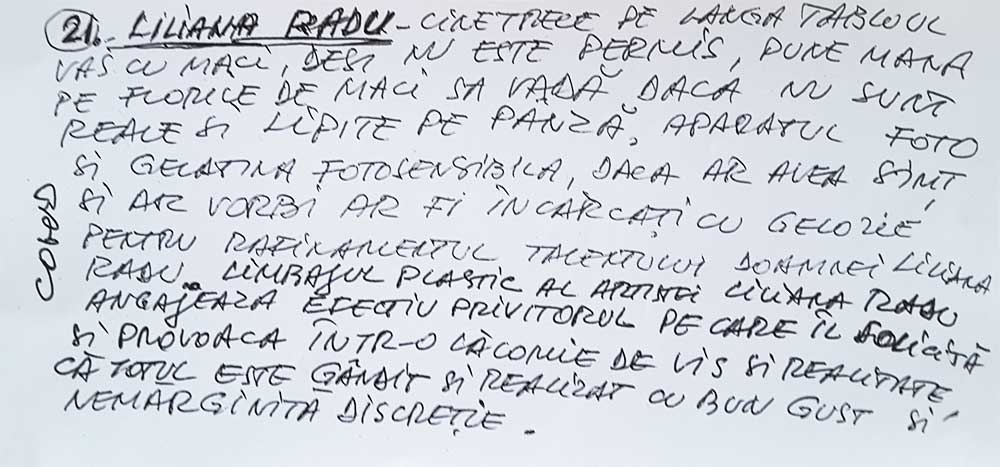 21. LILIANA RADU - CINE TRECE PE LANGA TABLOUL
VAS CU MACI, DESI NU ESTE PERMIS, PUNE MANA
PE FLORILE DE MACI SA VADĂ DACA NU SUNT
REALE SI LIPITE PE PÂNZĂ, APARATUL FOTO
SI GELATINA FOTOSENSIBILA, DACA AR AVEA SIMT,
SI AR VORBI AR FI ÎNCARCAȚI CU GELOZIE
PENTRU RAFINAMENTUL TALENTULUI DOAMNEI LILIANA
RADU. LIMBAJUL PLASTIC AL ARTISTEI LILIANA RADU
ANGAJEAZA EFECTIV PRIVITORUL PE CARE ÎL SOLICITĂ
SI PROVOACA ÎNTR-O LĂCOMIE DE VIS SI REALITATE,
CĂ TOTUL ESTE GÂNDIT SI REALIZAT CU BUN GUST SI
NEMARGINITĂ DISCREȚIE.